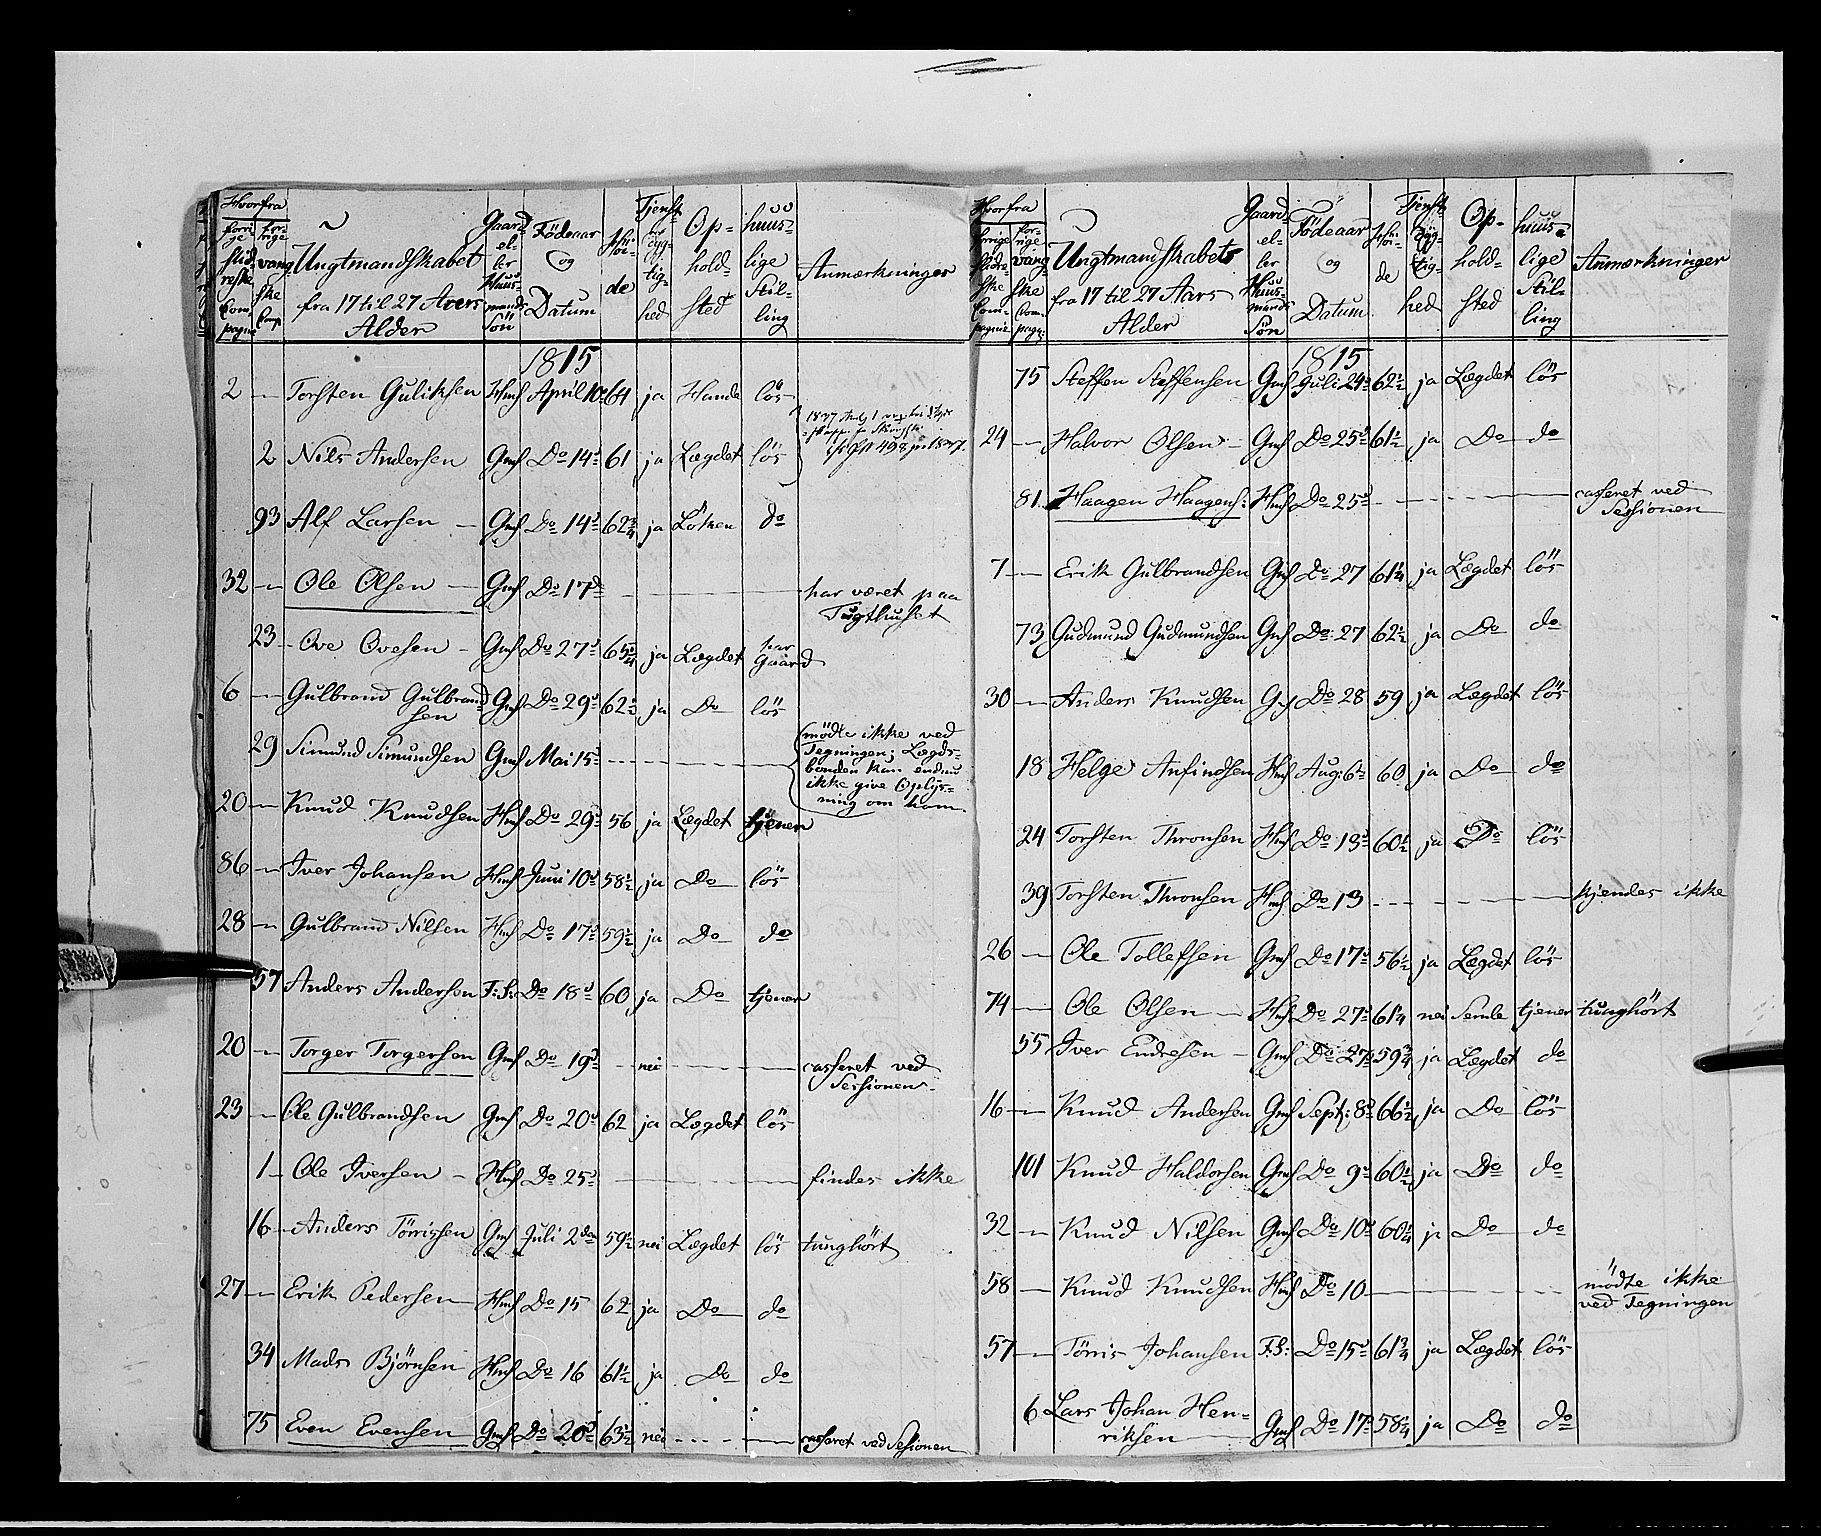 Hvorfra
forrige Slidreske Compagnie
forrige vangske Comp
Ungtmandskabet
fra 17 til 27 Aars
Alder
Gaard- eller Huusmands Sön
Födeaar og Datum
Höide
Tjenstdygtighed
Opholdsted
huuslige Stilling
Anmærkninger
1815
2 — Torsten Guliksen Hmf April 10 64 ja Hande lös
2 Nils Andersen Gmf Do 14 61 ja Lægdet lös
93 Alf Larsen — Gmf Do 14 62¾ ja Löken do
32 — Ole Olsen — Gmf Do 17 — har været paa Tugthuset
23 — Ove Ovesen — Gmf Do 27 65¾ ja Lægdet har Gaard
6 — Gulbrand Gulbrandsen Gmf Do 29 62½ ja Do lös
29 Simund Simundsen Gmf Mai 15 — mödte ikke ved Tegningen; Lægdsbonden kan endnu ikke give Oplysning om ham
20 — Knud Knudsen Hmf Do 29 56 ja Lægdet tjener
86 — Iver Johansen Hmf Juni 10 58½ ja Do lös
28 — Gulbrand Nilsen Hmf Do 17 59½ ja Do do
57 Anders Andersen F:S: Do 18 60 ja Do tjener
20 — Torger Torgersen Gmf Do 19 — nei — casseret ved Sessionen
23 — Ole Gulbrandsen Gmf Do 20 62 ja Lægdet lös
1 — Ole Iversen — Hmf Do 25 — findes ikke
16 — Anders Törrissen Gmf Juli 2den 59½ nei Lægdet lös tunghört
27 — Erik Pedersen Hmf Do 15 62 ja Do do
34 Mads Björnsen Hmf Do 16 61½ ja Do do
75 Even Evensen Gmf Do 20 63½ nei — casseret ved Sessionen
Hvorfra
forrige Slidreske Compagnie
forrige vangske Compagn:
Ungtmandskabet
fra 17 til 27 Aars
Alder
Gaard- eller Huusmands Sön
Födeaar og Datum
Höide
Tjenstdygtighed
Opholdsted
huuslige Stilling
Anmærkninger
1815
75 Steffen Steffensen Gmf Juli 24 62½ ja Lægdet lös
24 — Halvor Olsen — Gmf Do 25 61½ ja Do do
81 Haagen Haagens: Hmf Do 25 — casseret ved Sessionen
7 — Erik Gulbrandsen Gmf Do 27 61¼ ja Lægdet lös
73 Gudmund Gudmundsen Gmf Do 27 62½ ja Do do
30 — Anders Knudsen Gmf Do 28 59 ja Lægdet lös
18 Helge Anfindsen Hmf Aug: 6 60 ja Do do
24 Torsten Thronsen Hmf Do 13 60½ ja Do lös
39 Torsten Thronsen Hmf Do 13 — kjendes ikke
26 — Ole Tollefsen Gmf Do 17 56½ ja Lægdet lös
74 — Ole Olsen — Hmf Do 27 61¼ nei Semle tjener tunghört
55 Iver Endresen — Gmf Do 27 59¾ ja Lægdet do
16 — Knud Andersen Gmf Sept: 8 66½ ja Do lös
101 Knud Haldorsen Gmf Do 9 60½ ja Do do
32 — Knud Nilsen Gmf Do 10 60¼ ja Do do
58 — Knud Knudsen Hmf Do 10 — mödte ikke ved Tegningen
57 — Törris Johansen F:S: Do 15 61¾ ja Lægdet lös
6 Lars Johan Henriksen Gmf Do 17 58¼ ja Do do